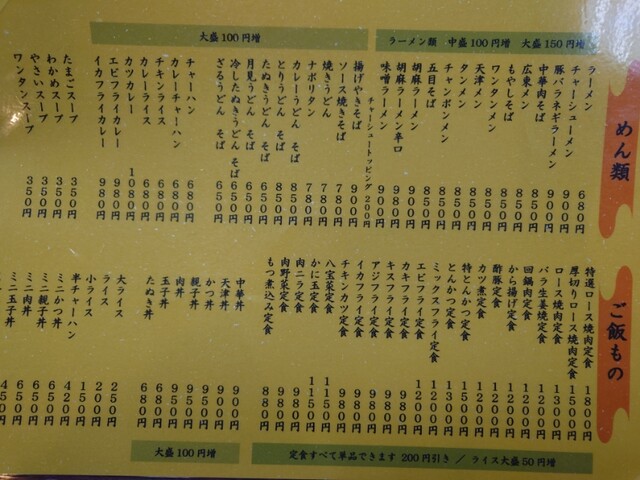 めん類
ラーメン類 中盛100円増 大盛150円増
ラーメン 680円
チャーシューメン 900円
豚バラネギラーメン 900円
中華肉そば 900円
広東メン 850円
もやしそば 850円
ワンタンメン 850円
天津メン 850円
タンメン 850円
チャンポンメン 850円
五目そば 850円
胡麻ラーメン 900円
胡麻ラーメン辛口 980円
味噌ラーメン 900円
チャーシュートッピング 200円
大盛100円増
揚げやきそば 900円
ソース焼きそば 780円
焼きうどん 780円
ナポリタン 780円
カレーうどん そば 850円
とりうどん そば 850円
たぬきうどん そば 650円
月見うどん そば 650円
冷したぬきうどん そば 650円
ざるうどん そば 650円
チャーハン 680円
カレーチャーハン 680円
チキンライス 680円
カレーライス 680円
カツカレー 1080円
エビフライカレー 980円
イカフライカレー 980円
たまごスープ 350円
わかめスープ 350円
やさいスープ 350円
ワンタンスープ 350円
ご飯もの
特選ロース焼肉定食 1800円
厚切りロース焼肉定食 1500円
ロース焼肉定食 1300円
バラ生姜焼定食 1200円
回鍋肉定食 1200円
から揚げ定食 1200円
酢豚定食 1200円
カツ煮定食 1200円
特とんかつ定食 1500円
とんかつ定食 1300円
ミックスフライ定食 1200円
エビフライ定食 1200円
カキフライ定食 980円
キスフライ定食 980円
アジフライ定食 980円
イカフライ定食 980円
チキンカツ定食 980円
八宝菜定食 1150円
かに玉定食 1150円
肉ニラ定食 980円
肉野菜定食 980円
もつ煮込み定食 880円
定食すべて単品できます 200円引き / ライス大盛50円増
中華丼 900円
天津丼 900円
かつ丼 950円
親子丼 950円
肉丼 950円
玉子丼 680円
たぬき丼 680円
大盛100円増
大ライス 250円
ライス 200円
小ライス 150円
半チャーハン 420円
ミニかつ丼 650円
ミニ親子丼 650円
ミニ肉丼 650円
ミニ玉子丼 450円